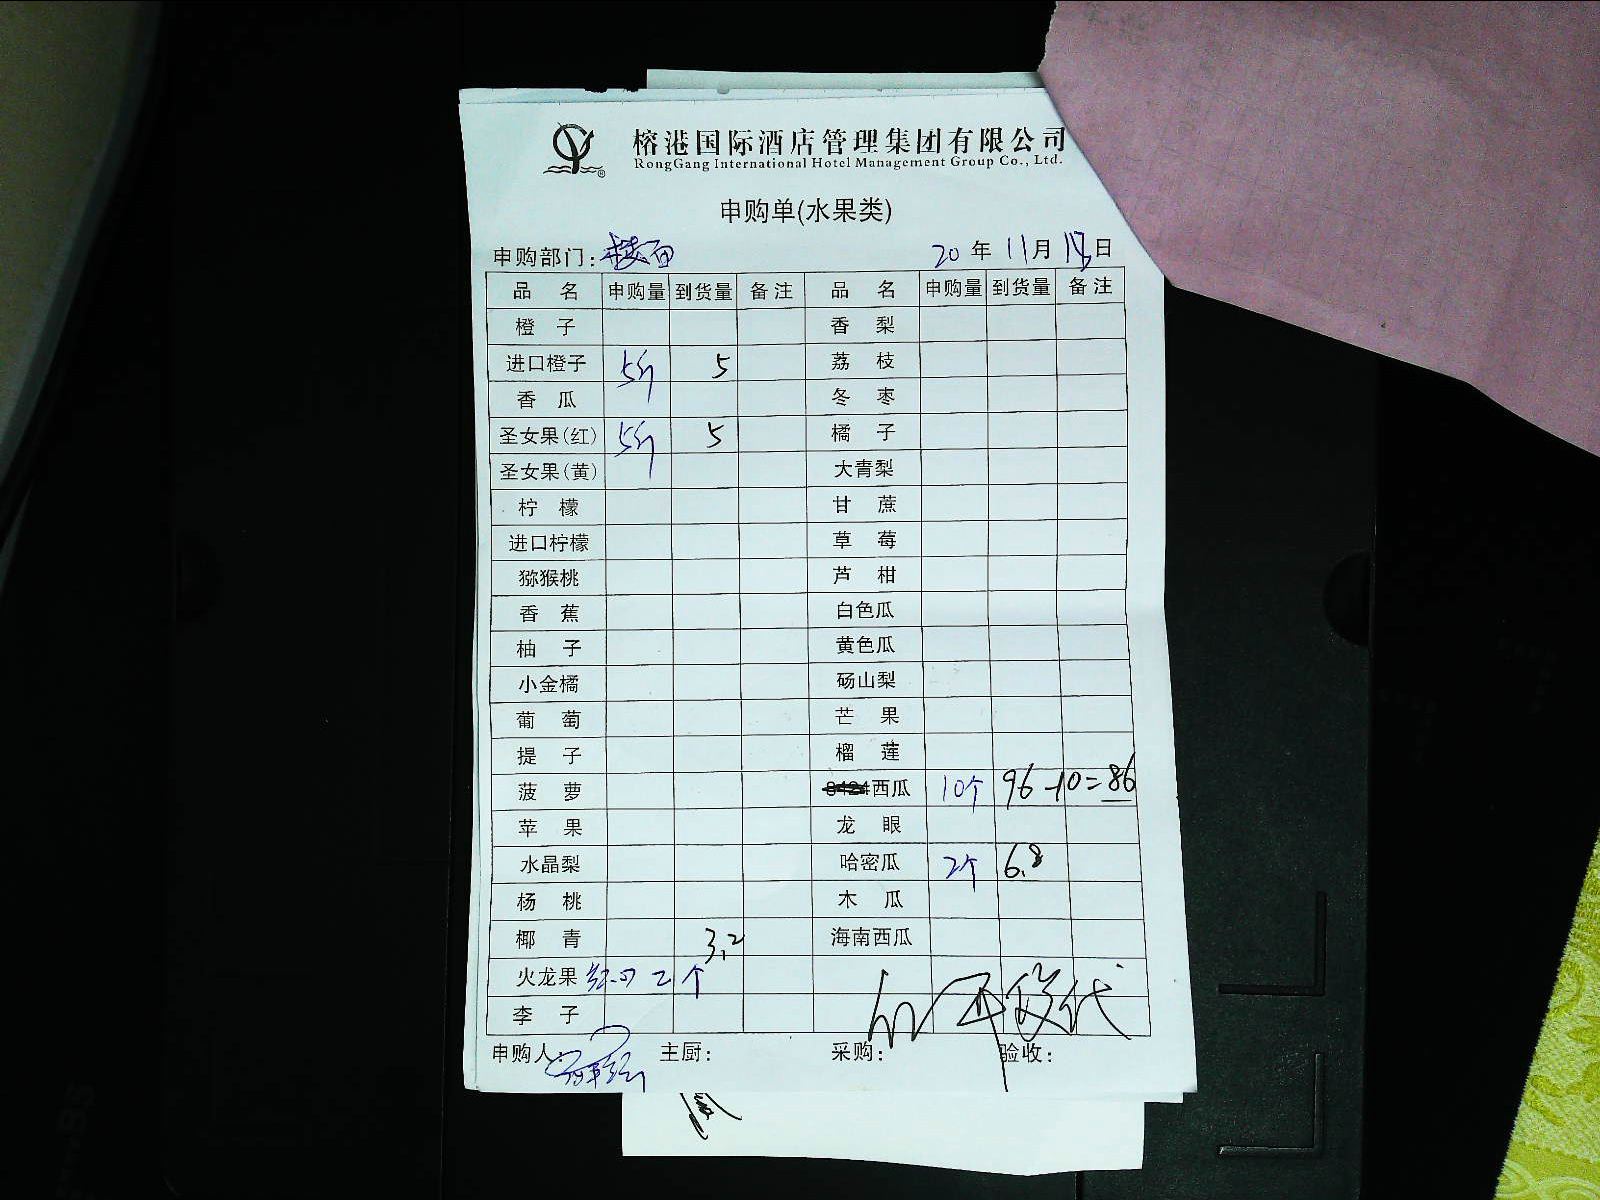 榕港国际酒店管理集团有限公司
RongGang International Hotel Management Group Co., Ltd.
申购单(水果类)
申购部门: 楼面 20 年 11 月 日
品 名 申购量 到货量 备注 品 名 申购量 到货量 备注
橙 子 香 梨
进口橙子 5斤 5 荔 枝
香 瓜 冬 枣
圣女果(红) 5斤 5 橘 子
圣女果(黄) 大青梨
柠 檬 甘 蔗
进口柠檬 草 莓
猕猴桃 芦 柑
香 蕉 白色瓜
柚 子 黄色瓜
小金橘 砀山梨
葡 萄 芒 果
提 子 榴 莲
菠 萝 8424西瓜 10个 96-10=86
苹 果 龙 眼
水晶梨 哈密瓜 2个 6.8
杨 桃 木 瓜
椰 青 3.2 海南西瓜
火龙果 红心 2个
李 子
申购人: 主厨: 采购: 验收: